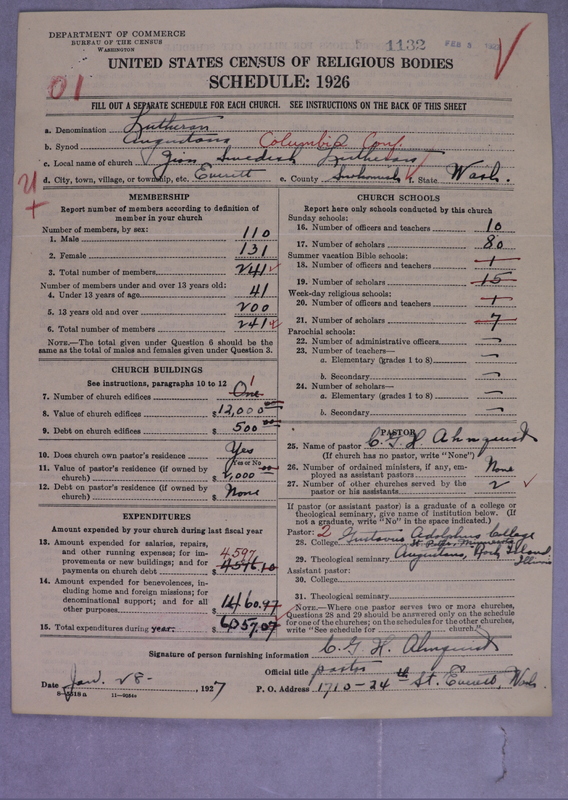 DEPARTMENT OF COMMERCE
BUREAU OF THE CENSUS
WASHINGTON
1132
FEB 5
UNITED STATES CENSUS OF RELIGIOUS BODIES
SCHEDULE: 1926
01
FILL OUT A SEPARATE SCHEDULE FOR EACH CHURCH. SEE INSTRUCTIONS ON THE BACK OF THIS SHEET
a. Denomination Lutheran
b. Synod Augustana Columbia Conf.
c. Local name of church Zion Swedish Lutheran
d. City, town, village, or township, etc. Everett e. County Snohomish f. State Wash.
MEMBERSHIP
Report number of members according to definition of
member in your church
Number of members, by sex:
1. Male 110
2. Female 131
3. Total number of members 241
Number of members under and over 13 years old:
4. Under 13 years of age 41
5. 13 years old and over 200
6. Total number of members 241
NOTE.—The total given under Question 6 should be the
same as the total of males and females given under Question 3.
CHURCH BUILDINGS
See instructions, paragraphs 10 to 12
7. Number of church edifices One 1
8. Value of church edifices $12,000 00
9. Debt on church edifices $500 00
10. Does church own pastor's residence Yes
(Yes or No)
11. Value of pastor's residence (if owned by
church) $ ,000 00
12. Debt on pastor's residence (if owned by
church) $ None
EXPENDITURES
Amount expended by your church during last fiscal year
13. Amount expended for salaries, repairs,
and other running expenses; for im-
provements or new buildings; and for
payments on church debt $ 4597 4596.10
14. Amount expended for benevolences, in-
cluding home and foreign missions; for
denominational support; and for all
other purposes 1460.97
15. Total expenditures during year $ 6057.07
CHURCH SCHOOLS
Report here only schools conducted by this church
Sunday schools:
16. Number of officers and teachers 10
17. Number of scholars 80
Summer vacation Bible schools:
18. Number of officers and teachers 1
19. Number of scholars 15
Week-day religious schools:
20. Number of officers and teachers 1
21. Number of scholars 7
Parochial schools:
22. Number of administrative officers —
23. Number of teachers—
a. Elementary (grades 1 to 8) —
b. Secondary —
24. Number of scholars—
a. Elementary (grades 1 to 8) —
b. Secondary —
PASTOR
25. Name of pastor C. G. H. Almquist
(If church has no pastor, write "None")
26. Number of ordained ministers, if any, em-
ployed as assistant pastors None
27. Number of other churches served by the
pastor or his assistants 2
If pastor (or assistant pastor) is a graduate of a college or
theological seminary, give name of institution below. (If
not a graduate, write "No" in the space indicated.)
Pastor: 2
28. College Gustavus Adolphus College
St. Peter, Minnesota
29. Theological seminary Augustana, Rock Island,
Illinois
Assistant pastor:
30. College
31. Theological seminary
NOTE.—Where one pastor serves two or more churches,
Questions 28 and 29 should be answered only on the schedule
for one of the churches; on the schedules for the other churches,
write "See schedule for church."
Signature of person furnishing information C. G. H. Almquist
Official title pastor
Date Jan. 28-, 1927 P. O. Address 1710-24th St. Everett, Wash.
8-5518a 11-9054a